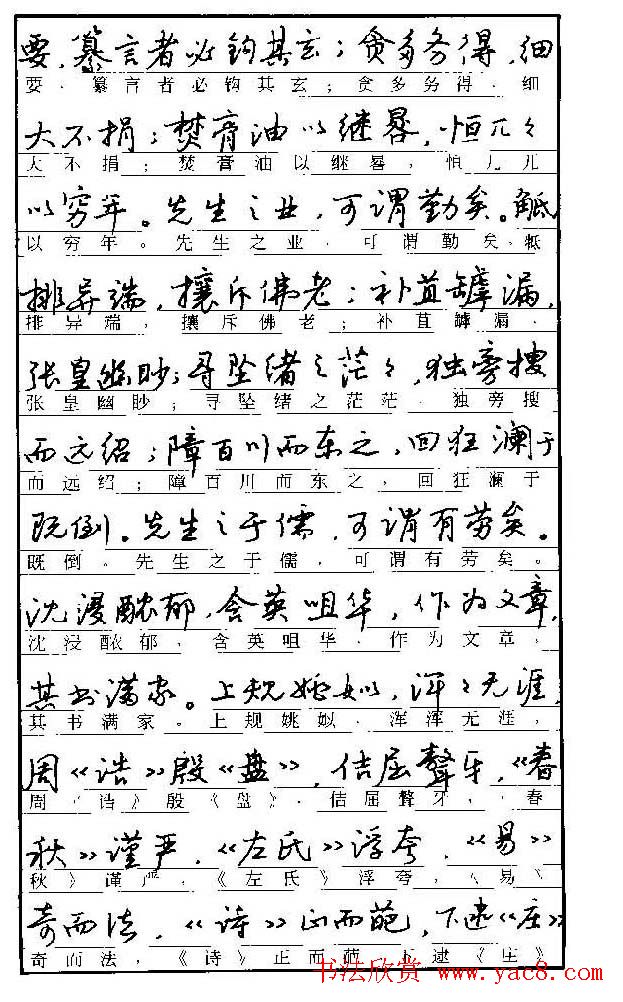 要，纂言者必钩其玄；贪多务得，细
要，纂言者必钩其玄；贪多务得，细
大不捐；焚膏油以继晷，恒兀々
大不捐；焚膏油以继晷，恒兀兀
以穷年。先生之业，可谓勤矣。觝
以穷年。先生之业，可谓勤矣。觝
排异端，攘斥佛老；补苴罅漏，
排异端，攘斥佛老；补苴罅漏，
张皇幽眇；寻坠绪之茫々，独旁搜
张皇幽眇；寻坠绪之茫茫，独旁搜
而远绍；障百川而东之，回狂澜于
而远绍；障百川而东之，回狂澜于
既倒。先生之于儒，可谓有劳矣。
既倒。先生之于儒，可谓有劳矣。
沈浸酞郁，含英咀华，作为文章，
沈浸酞郁，含英咀华，作为文章，
其书满家。上规姚姒，浑々无涯，
其书满家。上规姚姒，浑浑无涯，
周《诰》殷《盘》，佶屈聱牙，《春
周《诰》殷《盘》，佶屈聱牙，《春
秋》谨严，《左氏》浮夸，《易》
秋》谨严，《左氏》浮夸，《易》
奇而法，《诗》正而葩，下逮《庄》
奇而法，《诗》正而葩，下逮《庄》
书法欣赏 www.yac8.com